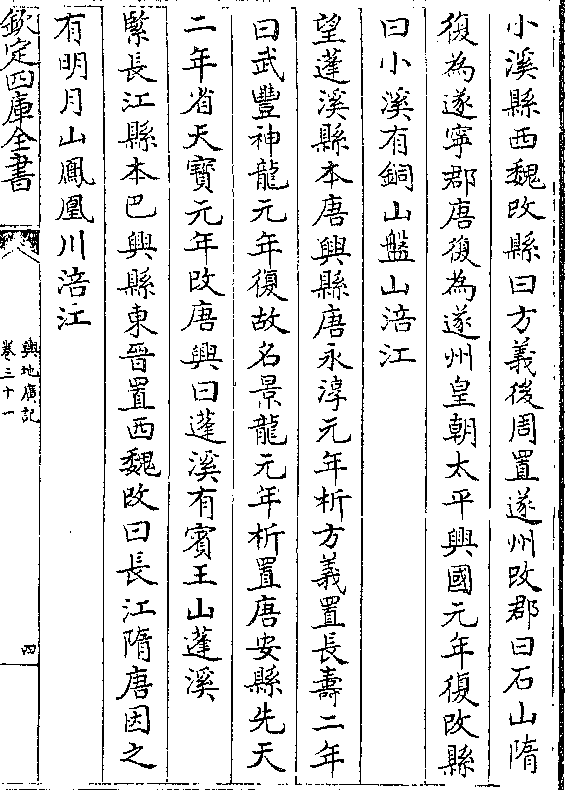 小溪縣西魏改縣曰方義後周置遂州改郡曰石山隋
復為遂寧郡唐復為遂州皇朝太平興國元年復改縣
曰小溪有銅山盤山涪江
望蓬溪縣本唐興縣唐永淳元年析方義置長壽二年
曰武豐神龍元年復故名景龍元年析置唐安縣先天
二年省天寳元年改唐興曰蓬溪有賓王山蓬溪
緊長江縣本巴興縣東晉置西魏改曰長江隋唐因之
有明月山鳳凰川涪江
欽定四庫全書
輿地廣記
卷三十一
四